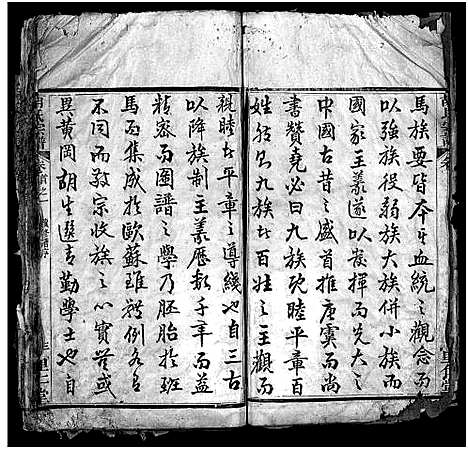 馬族要皆本乎血統之觀念而
以強族役弱族大族併小族而
國家主義遂以發揮而光大之
中國古昔之盛首推唐虞而尚
書贊堯必曰九族既睦平章百
姓然則九族者百姓之主觀而
親睦者平章之導綫也自三古
以降族制主義歷數千年而益
精密而圖譜之學乃胚胎於班
馬而集成於歐蘇雖體例各有
不同而敬宗收族之心實無或
異黃岡胡生選青勤學士也自